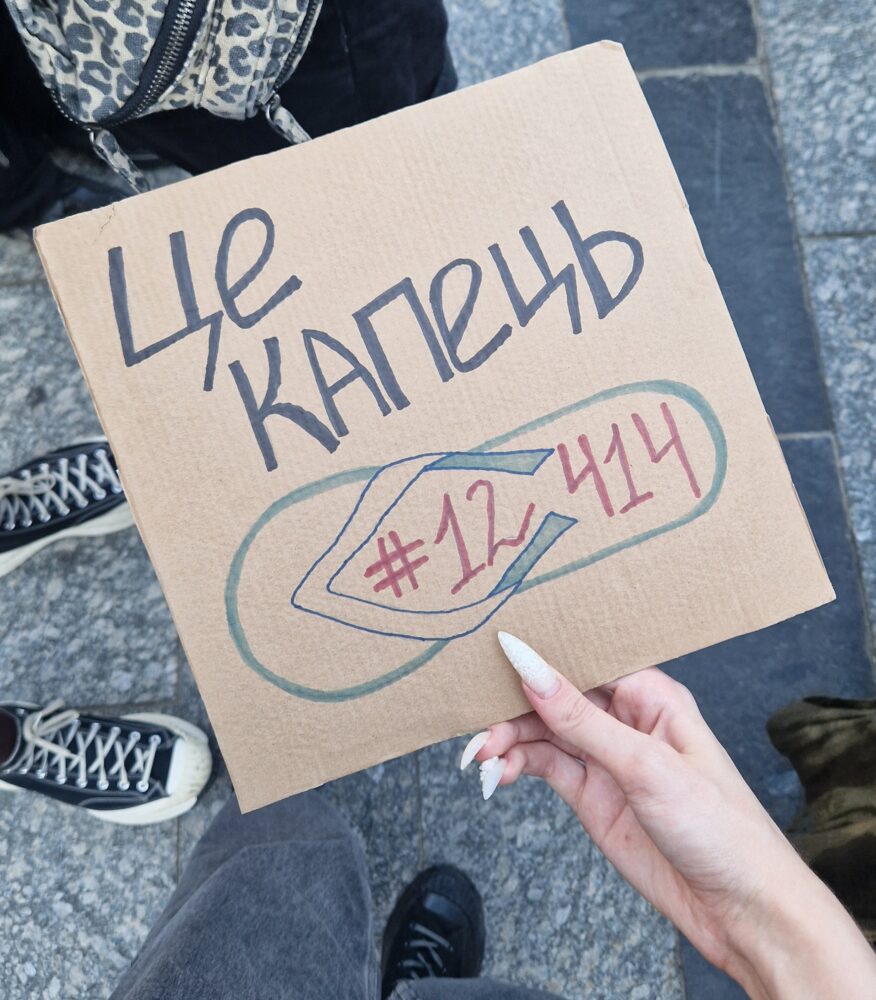 Це
капець
#12 414